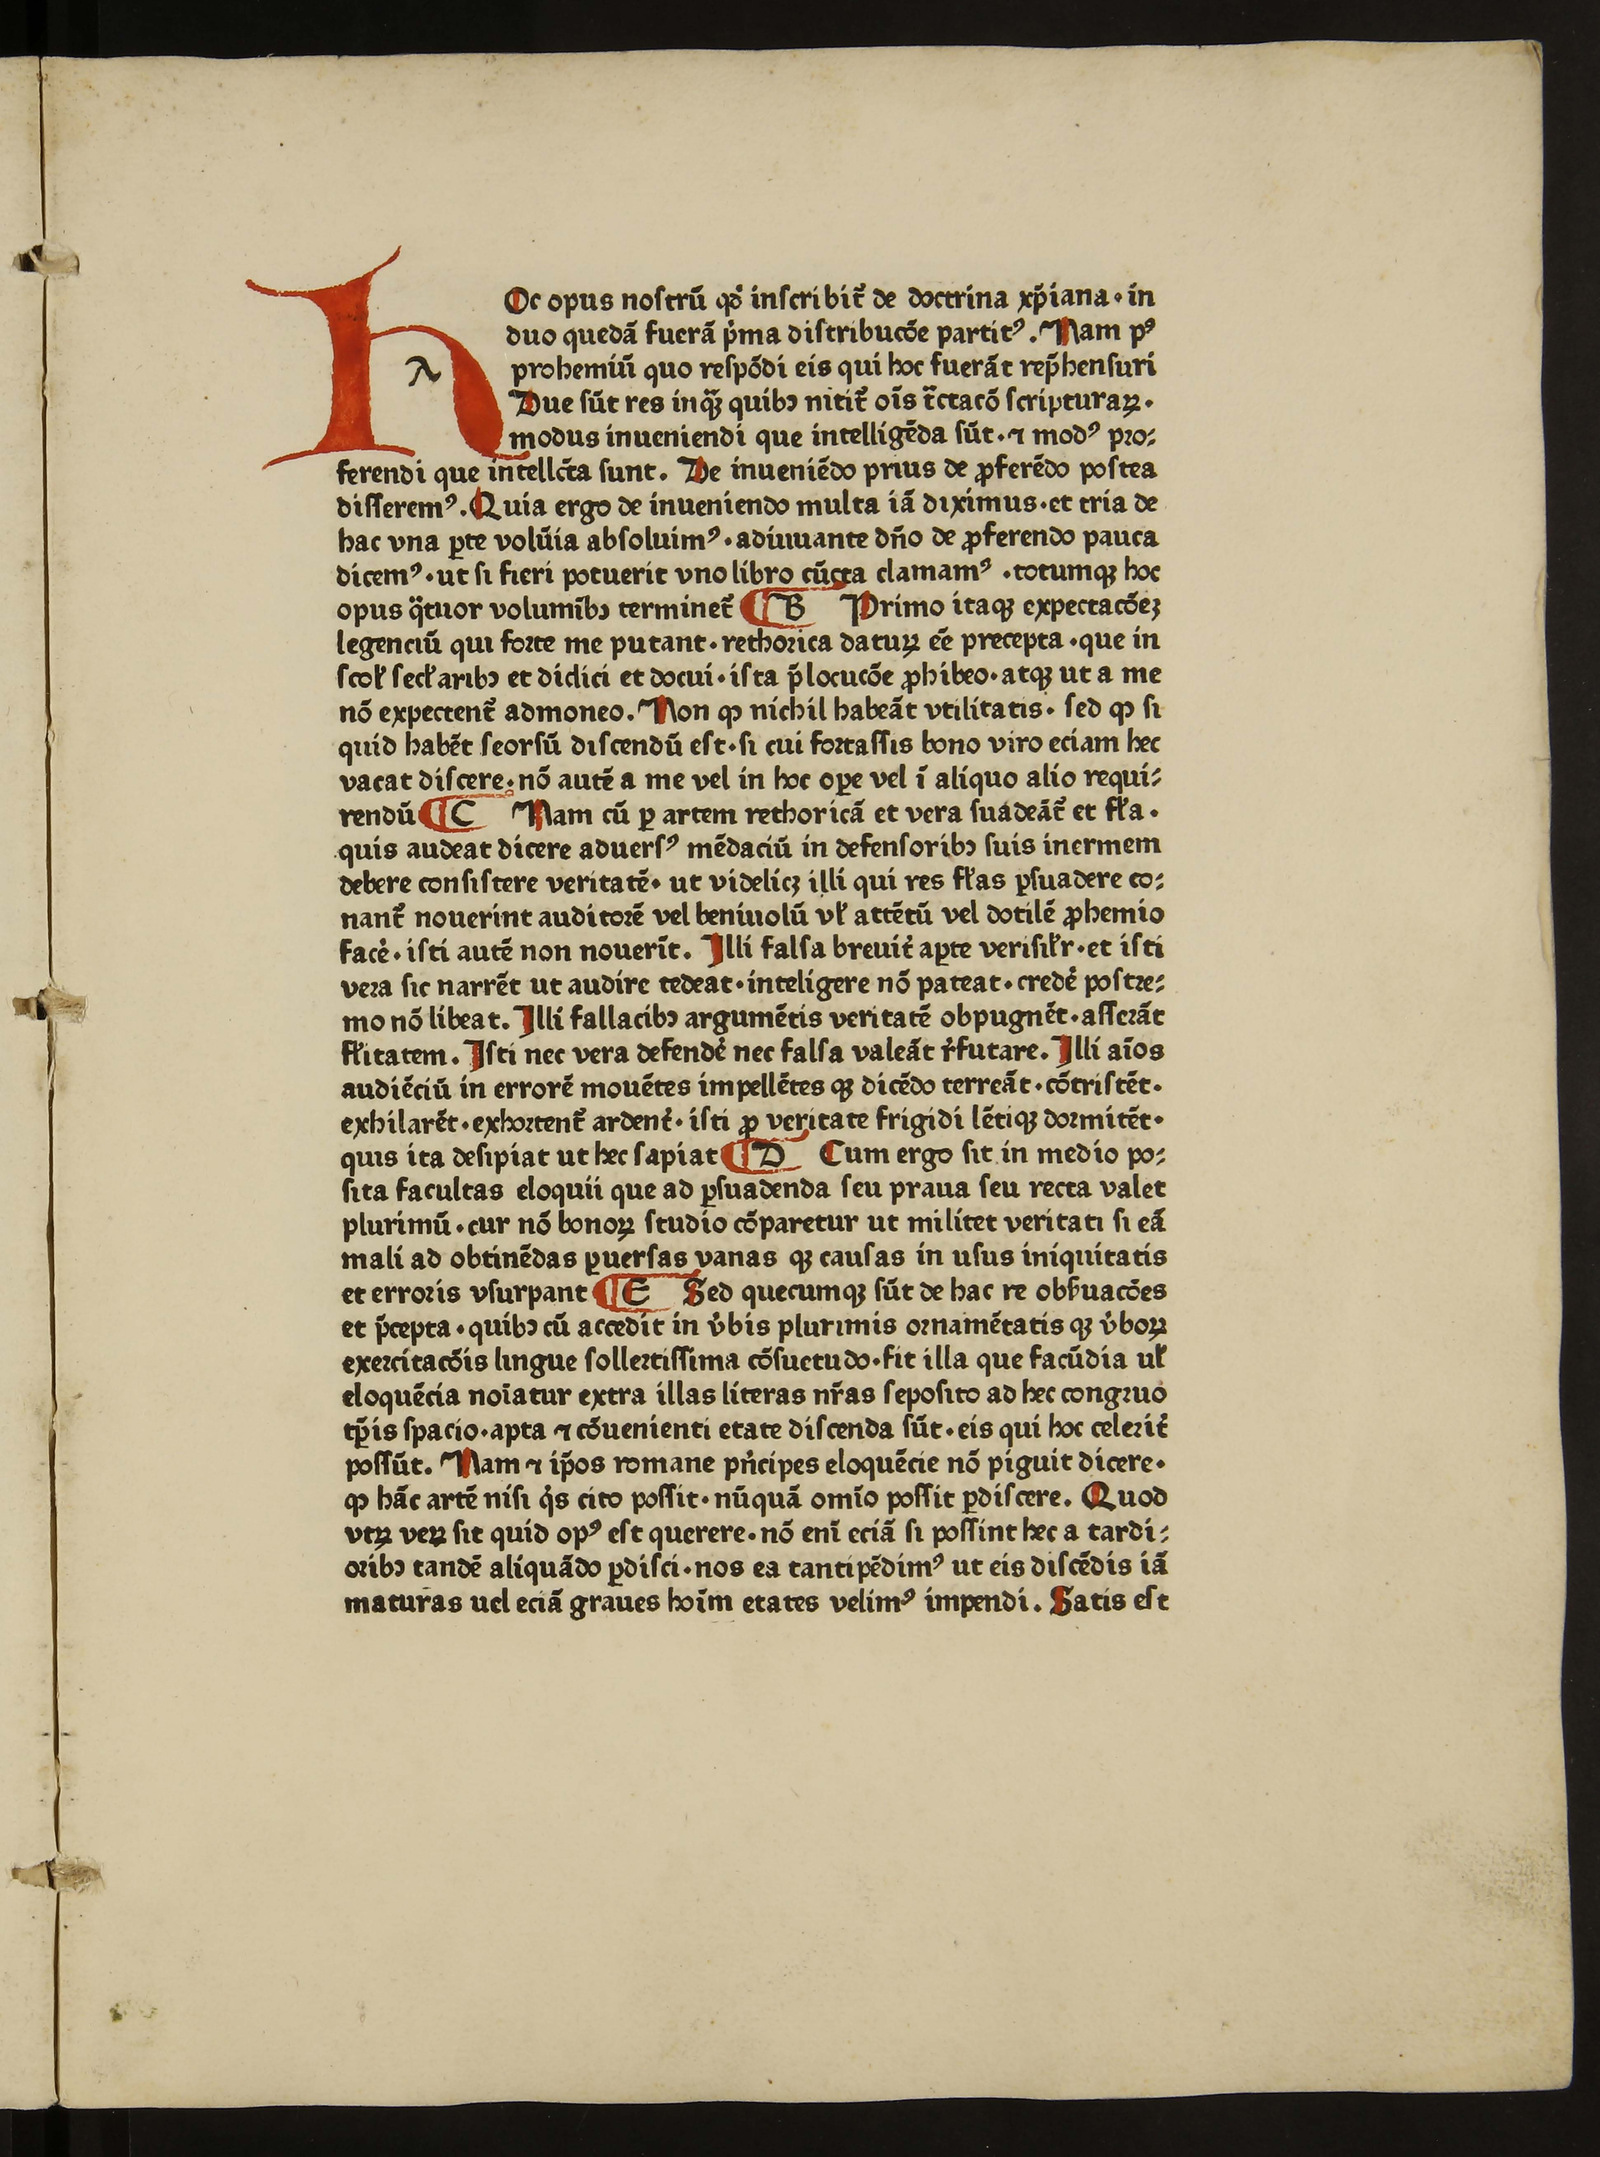 HOc opus noſtrū qd̓ inſcribit᷑ de doctrina xp̄iana · in
duo quedā fuerā p̓ma diſtribucōe partitꝰ. Nam pꝰ
A
prohemiū quo reſpōdi eis qui hoc fuerāt rep̄henſuri
Due ſūt res inq̄ꝫ quibɔ nitit᷑ oīs t̄ctacō ſcripturaꝝ ·
modus inueniendi que intelligēda ſūt · ⁊ modꝰ pro⸗
ferendi que intellc̄ta ſunt. De inueniēdo prius de ꝓferēdo poſtea
diſſeremꝰ. Quia ergo de inueniendo multa iā diximus · et tria de
hac vna ꝑte volūia abſoluimꝰ · adiuuante dn̄o de ꝓferendo pauca
dicemꝰ · ut ſi fieri potuerit vno libro cūcta clamamꝰ · totumqꝫ hoc
opus q̄tuor volumībɔ terminet᷑ ¶ B Primo itaqꝫ expectacōeꝫ
legenciū qui forte me putant · rethorica datuꝝ eē precepta · que in
ſcol̓ ſecl̓aribɔ et didici et docui · iſta p̄locucōe ꝓhibeo · atqꝫ ut a me
nō expectent᷑ admoneo. Non ꝙ nichil habeāt vtilitatis · ſed ꝙ ſi
quid habēt ſeorſū diſcendū eſt · ſi cui fortaſſis bono viro eciam hec
vacat diſcere · nō autē a me vel in hoc oꝑe vel ī aliquo alio requi⸗
rendū ¶ C Nam cū ꝑ artem rethoricā et vera ſuadeāt᷑ et fl̓a ·
quis audeat dicere aduerſꝰ mēdaciū in defenſoribɔ ſuis inermem
debere conſiſtere veritatē · ut videlicꝫ illi qui res fl̓as ꝑſuadere co⸗
nant᷑ nouerint auditorē vel beniuolū vl̓ attētū vel dotilē ꝓhemio
facē · iſti autē non nouerīt. Illi falſa breuit᷑ aꝑte veriſil̓r · et iſti
vera ſic narrēt ut audire tedeat · inteligere nō pateat · credē poſtre⸗
mo nō libeat. Illi fallacibɔ argumētis veritatē obpugnēt · aſſerāt
fl̓itatem. Iſti nec vera defendē nec falſa valeāt r̓futare. Illi aīos
audiēciū in errorē mouētes impellētes qꝫ dicēdo terreāt · cōtriſtēt ·
exhilarēt · exhortent᷑ ardent᷑ · iſti ꝓ veritate frigidi lētiqꝫ dormitēt ·
quis ita deſipiat ut hec ſapiat ¶ D Cum ergo ſit in medio po⸗
ſita facultas eloquii que ad ꝑſuadenda ſeu praua ſeu recta valet
plurimū · cur nō bonoꝝ ſtudio cōparetur ut militet veritati ſi eā
mali ad obtinēdas ꝑuerſas vanas qꝫ cauſas in uſus iniquitatis
et erroris vſurpant ¶ E Sed quecumqꝫ ſūt de hac re obẜuacōes
et p̄cepta · quibɔ cū accedit in v̓bis plurimis ornamētatis qꝫ v̓boꝝ
exercitacōis lingue ſollertiſſima cōſuetudo · fit illa que facūdia ul̓
eloquēcia noīatur extra illas literas nr̄as ſepoſito ad hec congruo
tp̄is ſpacio · apta ⁊ cōuenienti etate diſcenda ſūt · eis qui hoc celerit᷑
poſſūt. Nam ⁊ ip̄os romane pn̓cipes eloquēcie nō piguit dicere ·
ꝙ hāc artē niſi q̓s cito poſſit · nūquā omīo poſſit ꝑdiſcere. Quod
vtꝝ veꝝ ſit quid opꝰ eſt querere · nō enī eciā ſi poſſint hec a tardi⸗
oribɔ tandē aliquādo ꝑdiſci · nos ea tanti pēdimꝰ ut eis diſcēdis iā
maturas uel eciā graues hoīm etates velimꝰ impendi. Satis eſt